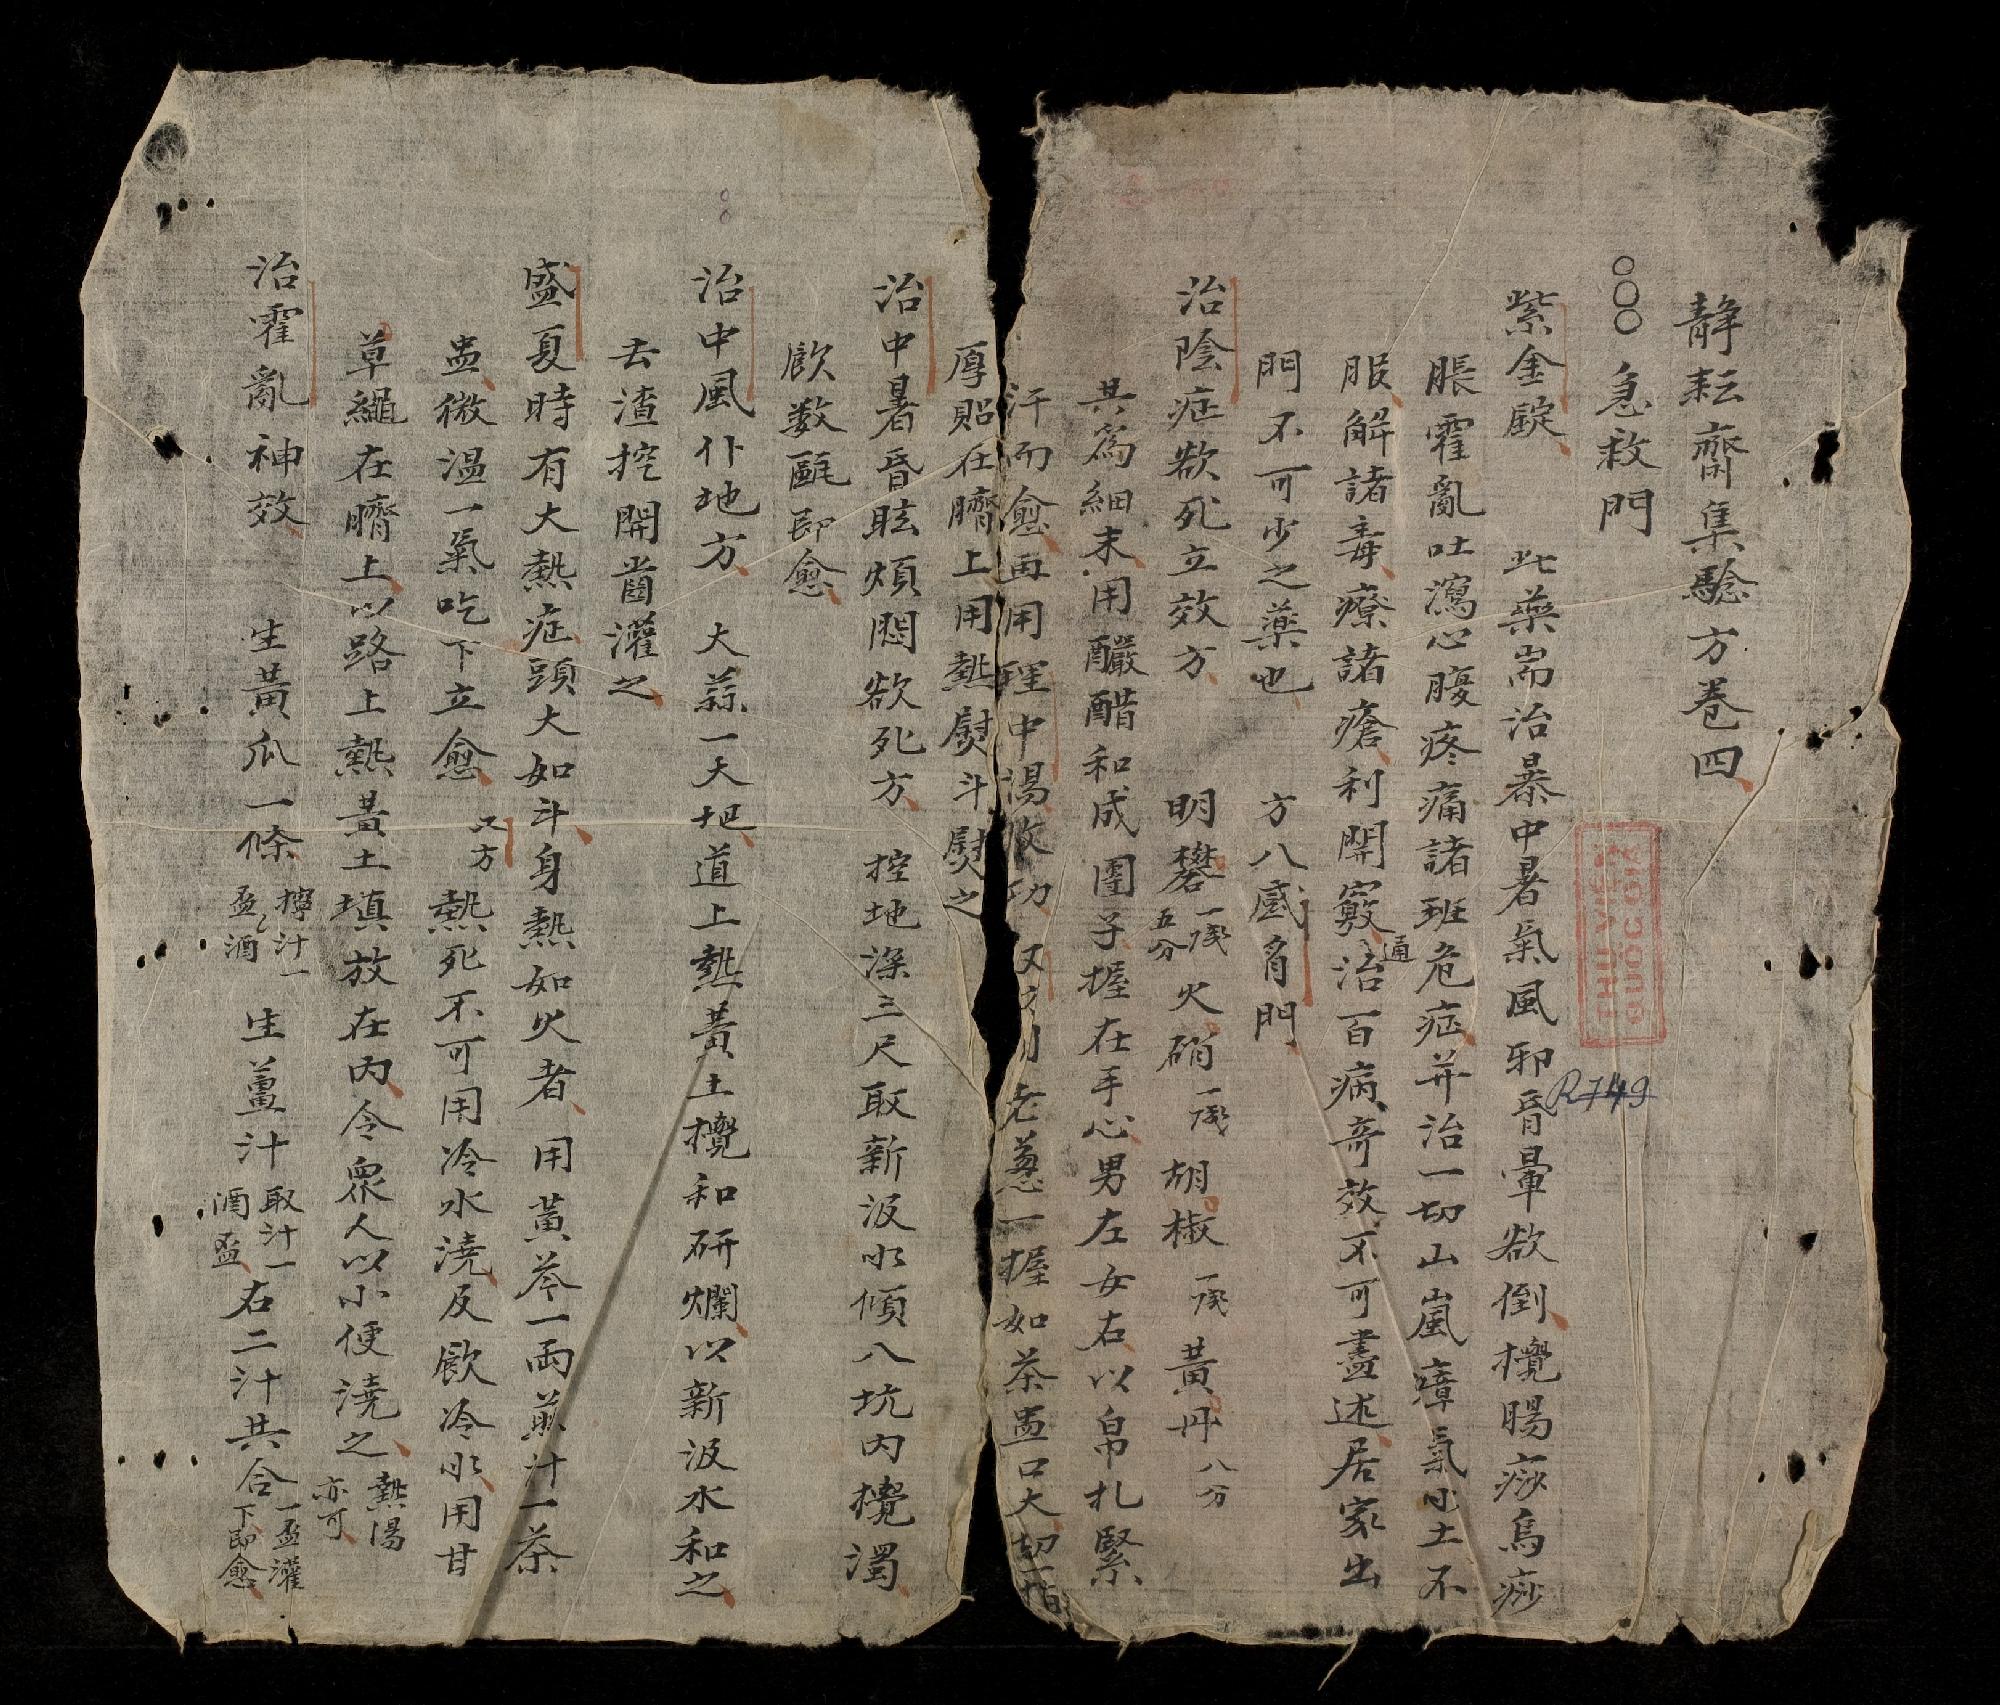 靜耘齋集驗方卷四
○○○急救門
紫金錠 此藥耑治暴中暑氣風邪昏暈欲倒攪腸痧烏痧
脹霍亂吐瀉心腹疼痛諸班危症并治一切山嵐瘴氣水土不
服解諸毒療諸瘡利關竅通治百病奇效不可盡述居家出
門不可少之藥也 方八感冒門
治陰症欲死立效方 明礬一錢五分火硝一錢胡椒一錢黃丹八分
共爲細末用釅醋和成團子握在手心男左女右以帛札緊
汗而愈再用理中湯收功 又方用老蔥一握如茶盅口大切一指
厚貼在臍上用熱熨斗熨之
治中暑昏眩煩悶欲死方 挖地深三尺取新汲水傾入坑內攪濁
飲数甌即愈
治中風仆地方 大蒜一大把道上熱黃土攪和研爛以新汲水和之
去渣挖開齒灌之
盛夏時有大熱症頭大如斗身熱如火者用黃芩一兩煎汁一茶
盅微溫一氣吃下立愈 又方熱死不可用冷水澆反飲冷水用甘
草繩在臍上以路上熱黃土填放在內令眾人以小便澆之熱湯亦可
治霍亂神效 生黃瓜一條擰汁一盃酒 生薑汁取汁一酒盃右二汁共合一盃灌下即愈
通
THƯ VIỆN
QUỐC GIA
R749